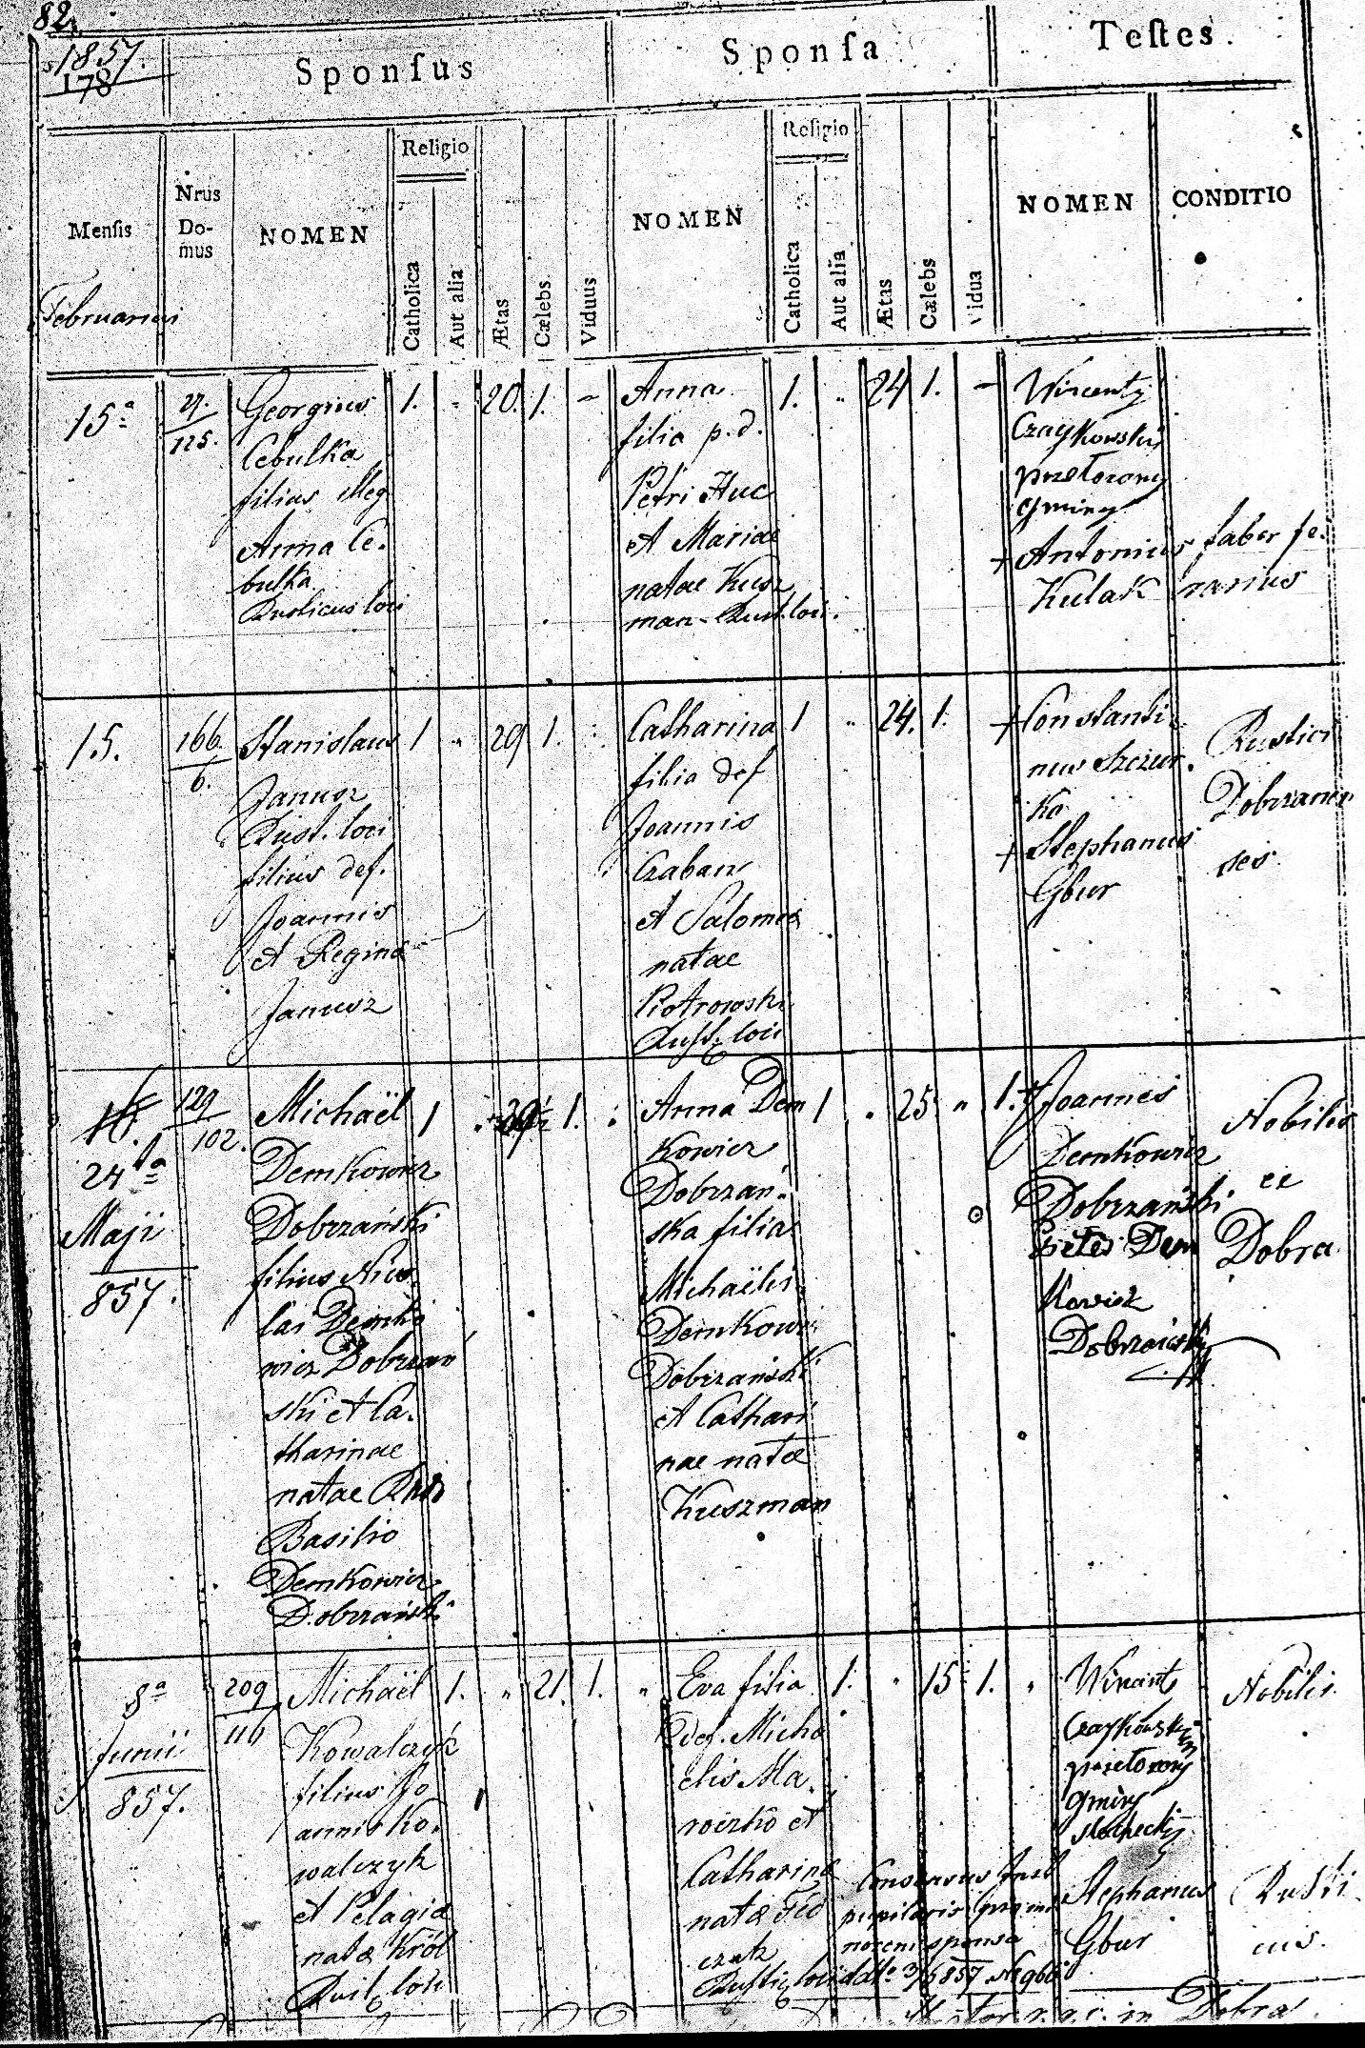 82.
1857.
178
Sponsus
Sponsa
Testes.
Mensis
Nrus Do-mus
NOMEN
Religio
Catholica
Aut alia
Ætas
Cælebs
Viduus
NOMEN
Religio
Catholica
Aut alia
Ætas
Cælebs
Vidua
NOMEN
CONDITIO
Februarius
15ª
27.
125.
Georgius
Cebulka
filius illeg
Anna Ce-
bulka
Rusticus loci
1.
20.
1.
Anna
filia p. d.
Petri Huc
et Mariae
natae Kusz
man - Rust. loci.
1.
24
1.
Wincenty
Czaykowski
przełożony
gminy
+ Antonius
Kulak
faber fe-
rrarius
15.
166.
6.
Stanislaus
Janusz
Rust. loci
filius def.
Joannis
et Regina
Janusz
1
29
1.
Catharina
filia def
Joannis
Czaban
et Salomea
natae
Piotrowski
Rust. loci
1
24.
1.
+ Constanti-
nus Szczur-
ko
+ Stephanus
Gbur
Rustici
Dobrzanen
ses
16.
24ta
Maji
857.
129
102.
Michaël
Demkowicz
Dobrzański
filius Nico
lai Demko
wicz Dobrzań
ski et Ca-
tharinae
natae
Basilio
Demkowicz
Dobrzański
1
1.
Anna Dem
kowicz
Dobrzań-
ska filia
Michaëlis
Demkowi
Dobrzański
et Cathari
nae natae
Kuszman
1
25
1.
+ Joannes
Demkowicz
Dobrzański
Dem
kowicz
Dobrzański
Nobiles
ex
Dobra
8ª
Junii
857.
209
116
Michaël
Kowalczyk
filius Jo
annis Ko-
walczyk
et Pelagia
natæ Król
loci
1.
21.
1.
Eva filia
def. Micha
elis Ma-
et
Catharina
natæ Fed
czak
Rustic. loci
1.
15
1.
Consensus
pupilaris
sponsa
857 N 966
Wincent
Czaykowski
przełożony
gminy
Stephanus
Gbur
Nobilis
Rusti-
cus.
in Dobra